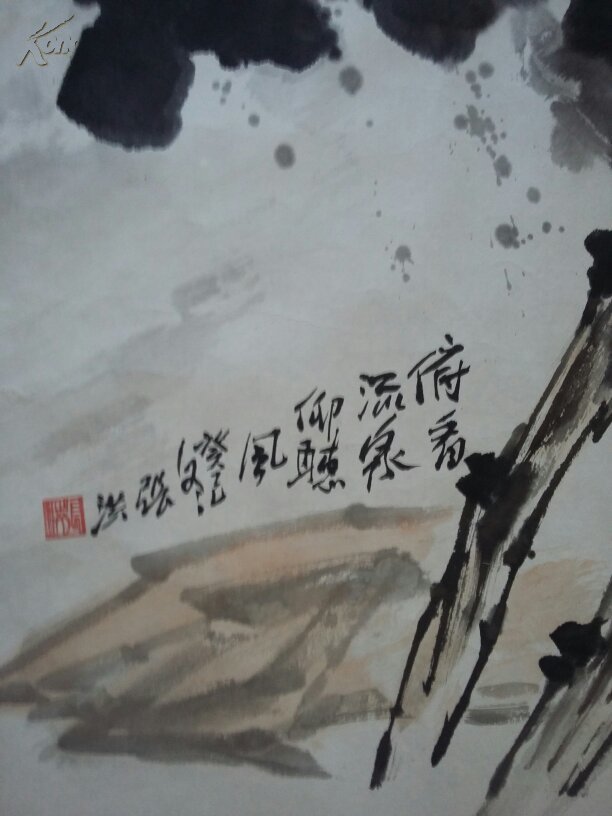 俯看
流泉
仰聽
風
癸巳
冬
張
洪